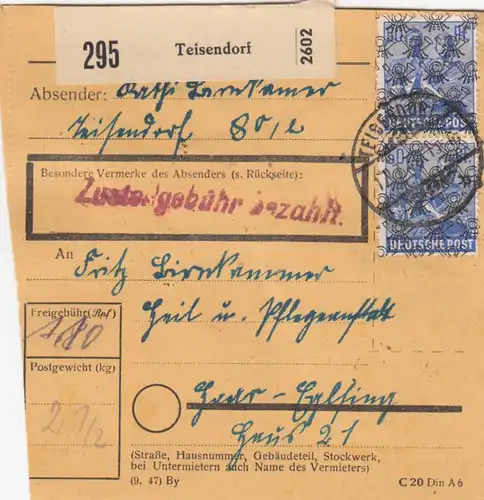 295 Teisendorf 2602
Absender: Kathi Birnkammer
Teisendorf 80 1/2
Besondere Vermerke des Absenders (s. Rückseite):
Zustellgebühr bezahlt.
An Fritz Birnkammer
Heil u. Pflegeanstalt
Freigebühr (Rpf)
180
Postgewicht (kg)
2 1/2
Haar-Eglfing
Haus 21
(Straße, Hausnummer, Gebäudeteil, Stockwerk,
bei Untermietern auch Name des Vermieters)
(9. 47) By
C 20 Din A 6
DEUTSCHE POST